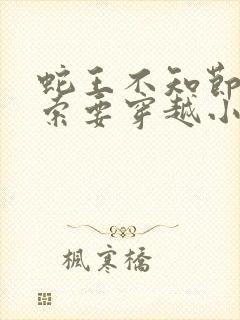 蛇王不知節
索要穿越小
楓寒橋